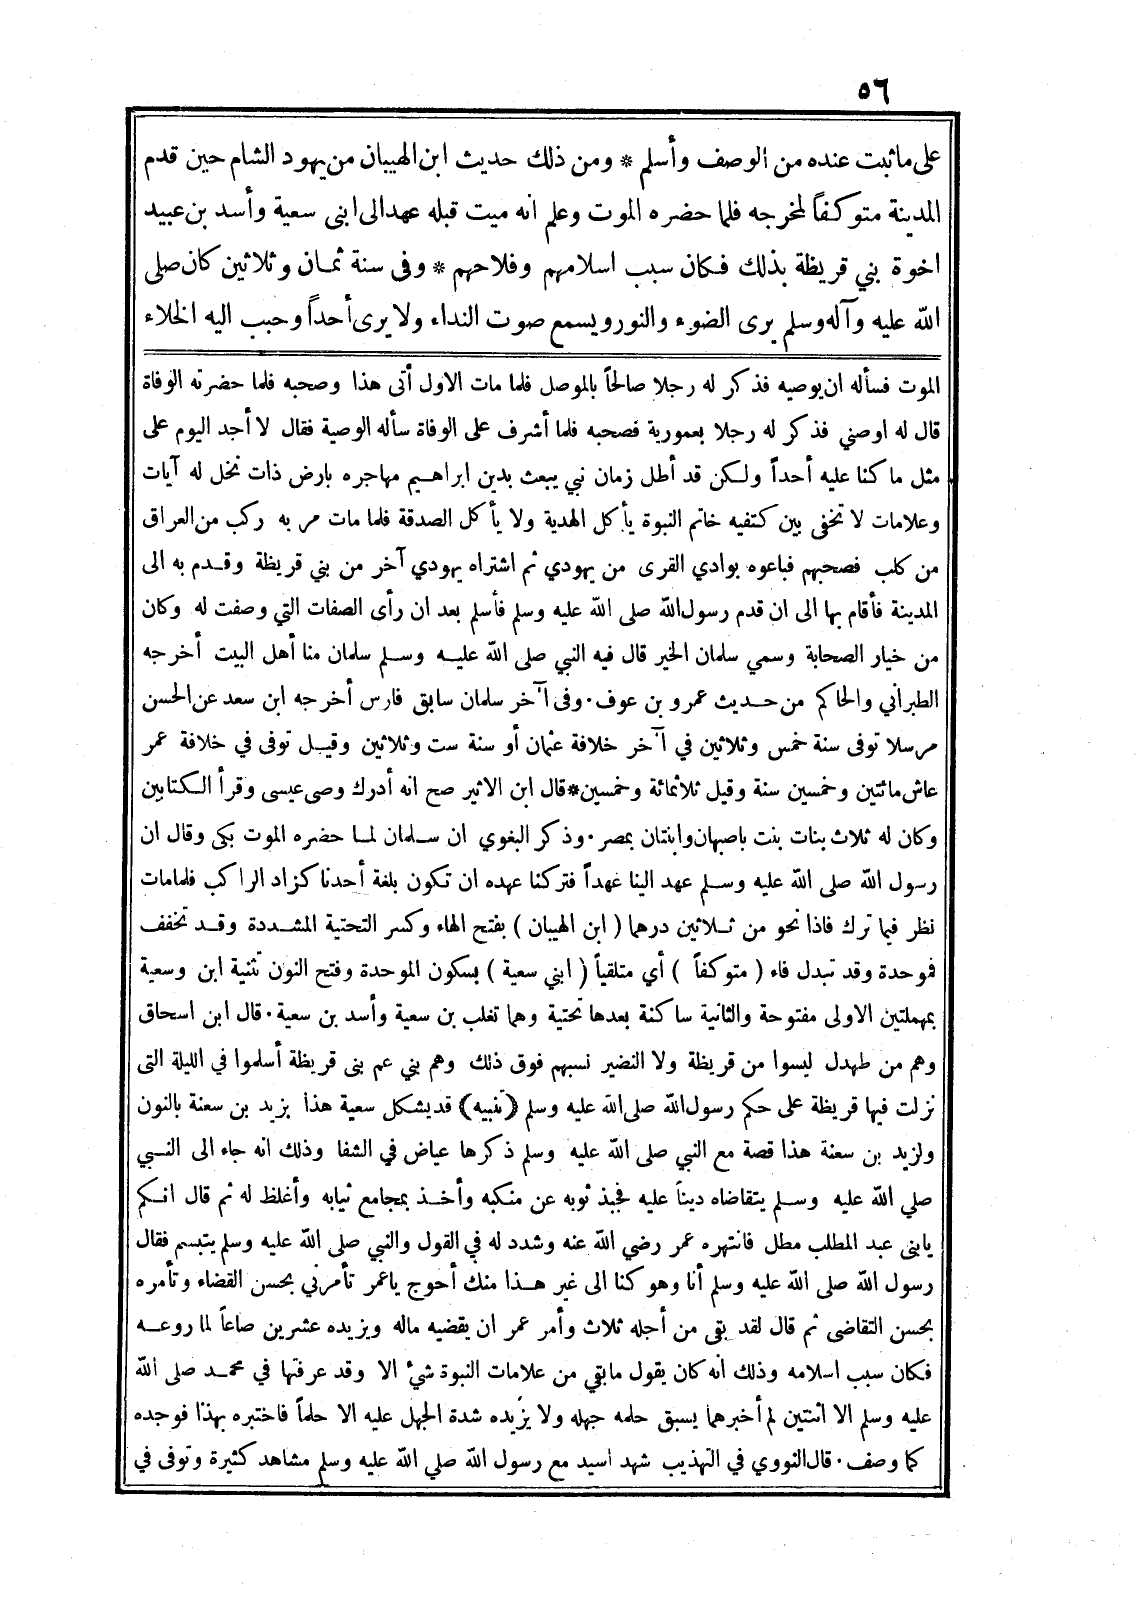 ٥٦
على ما ثبت عنده من الوصف وأسلم * ومن ذلك حديث ابن الهيبان من يهود الشام حين قدم
المدينة متوكفاً لمخرجه فلما حضره الموت وعلم انه ميت قبله عهد الى ابنى سعية وأسد بن عبيد
اخوة بني قريظة بذلك فكان سبب اسلامهم وفلاحهم * وفى سنة ثمان وثلاثين كان صلى
الله عليه وآله وسلم يرى الضوء والنور ويسمع صوت النداء ولا يرى أحداً وحبب اليه الخلاء
الموت فسأله ان يوصيه فذكر له رجلا صالحاً بالموصل فلما مات الاول أتى هذا وصحبه فلما حضرته الوفاة
قال له اوصني فذكر له رجلا بعمورية فصحبه فلما أشرف على الوفاة سأله الوصية فقال لا أجد اليوم على
مثل ما كنا عليه أحداً ولكن قد أطل زمان نبي يبعث بدين ابراهيم مهاجره بارض ذات نخل له آيات
وعلامات لا تخفى بين كتفيه خاتم النبوة يأكل الهدية ولا يأكل الصدقة فلما مات مر به ركب من العراق
من كلب فصحبهم فباعوه بوادي القرى من يهودي ثم اشتراه يهودي آخر من بني قريظة وقدم به الى
المدينة فأقام بها الى ان قدم رسول الله صلى الله عليه وسلم فأسلم بعد ان رأى الصفات التي وصفت له وكان
من خيار الصحابة وسمي سلمان الخير قال فيه النبي صلى الله عليه وسلم سلمان منا أهل البيت أخرجه
الطبراني والحاكم من حديث عمرو بن عوف . وفى آخر سلمان سابق فارس أخرجه ابن سعد عن الحسن
مرسلا توفى سنة خمس وثلاثين في آخر خلافة عثمان أو سنة ست وثلاثين وقيل توفى في خلافة عمر
عاش مائتين وخمسين سنة وقيل ثلاثمائة وخمسين * قال ابن الاثير صح انه أدرك وصى عيسى وقرأ الكتابين
وكان له ثلاث بنات بنت باصبهان وابنتان بمصر . وذكر البغوي ان سلمان لما حضره الموت بكى وقال ان
رسول الله صلى الله عليه وسلم عهد الينا عهداً فتركنا عهده ان تكون بلغة أحدنا كزاد الراكب فلما مات
نظر فيما ترك فاذا نحو من ثلاثين درهما ( ابن الهيبان ) بفتح الهاء وكسر التحتية المشددة وقد تخفف
فموحدة وقد تبدل فاء ( متوكفاً ) أي متلقياً ( ابني سعية ) بسكون الموحدة وفتح النون تثنية ابن وسعية
بمهملتين الاولى مفتوحة والثانية ساكنة بعدها تحتية وهما تغلب بن سعية وأسد بن سعية . قال ابن اسحاق
وهم من طهدل ليسوا من قريظة ولا النضير نسبهم فوق ذلك وهم بني عم بنى قريظة أسلموا في الليلة التى
نزلت فيها قريظة على حكم رسول الله صلى الله عليه وسلم (تنبيه) قد يشكل سعية هذا بزيد بن سعنة بالنون
ولزيد بن سعنة هذا قصة مع النبي صلى الله عليه وسلم ذكرها عياض في الشفا وذلك انه جاء الى النبي
صلي الله عليه وسلم يتقاضاه ديناً عليه فجبذ ثوبه عن منكبه وأخذ بمجامع ثيابه وأغلظ له ثم قال انكم
يابنى عبد المطلب مطل فانتهره عمر رضي الله عنه وشدد له في القول والنبي صلى الله عليه وسلم يتبسم فقال
رسول الله صلى الله عليه وسلم أنا وهو كنا الى غير هذا منك أحوج ياعمر تأمرني بحسن القضاء وتأمره
بحسن التقاضى ثم قال لقد بقى من أجله ثلاث وأمر عمر ان يقضيه ماله ويزيده عشرين صاعاً لما روعه
فكان سبب اسلامه وذلك أنه كان يقول مابقي من علامات النبوة شيء الا وقد عرفتها في محمد صلى الله
عليه وسلم الا اثنتين لم أخبرهما يسبق حلمه جهله ولا يزيده شدة الجهل عليه الا حلماً فاختبره بهذا فوجده
كما وصف . قال النووي في التهذيب شهد اسيد مع رسول الله صلي الله عليه وسلم مشاهد كثيرة وتوفى في